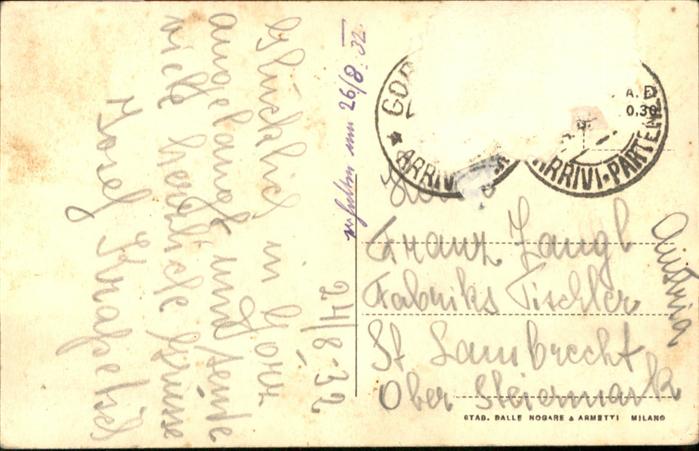 Glücklich in Görz
angelangt und sende
viele herzliche Grüsse
Josef
24/8·32
26/8. 32.
GOR
ARRIVI
A. D
0.30
ARRIVI-PARTENZ
Franz Zangl
Fabriks Tischler
St Lambrecht
Ober Steiermark
Austria
STAB. DALLE NOGARE & ARMETTI MILANO